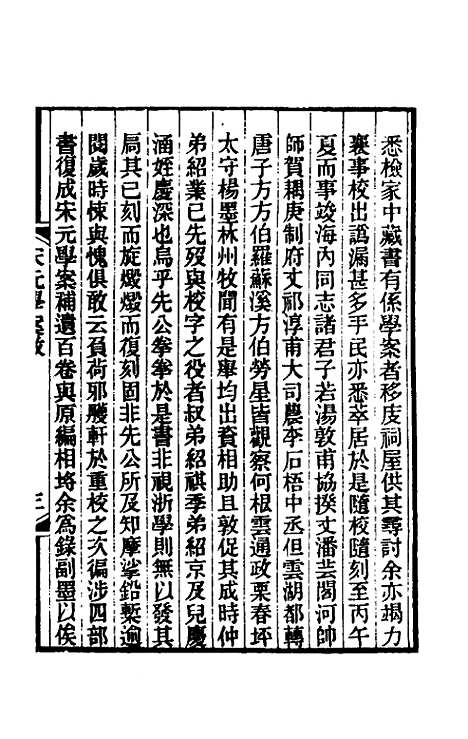 悉檢家中藏書有係學案者移庋祠屋供其尋討余亦竭力
襄事校出譌漏甚多手民亦悉萃居於是隨校隨刻至丙午
夏而事竣海內同志諸君子若湯敦甫協揆丈潘芸閣河帥
師賀耦庚制府丈祁淳甫大司農李石梧中丞但雲湖都轉
唐子方方伯羅蘇溪方伯勞星皆觀察何根雲通政栗春坪
太守楊墨林州牧聞有是舉均出資相助且敦促其成時仲
弟紹業已先歿與校字之役者叔弟紹祺季弟紹京及兒慶
涵姪慶深也烏乎先公拳拳於是書非視浙學則無以發其
扃其已刻而旋燬燬而復刻固非先公所及知摩挲鉛槧逾
閱歲時悚與愧俱敢云負荷邪雘軒於重校之次徧涉四部
書復成宋元學案補遺百卷與原編相埒余為錄副墨以俟
宋元學案敘
三